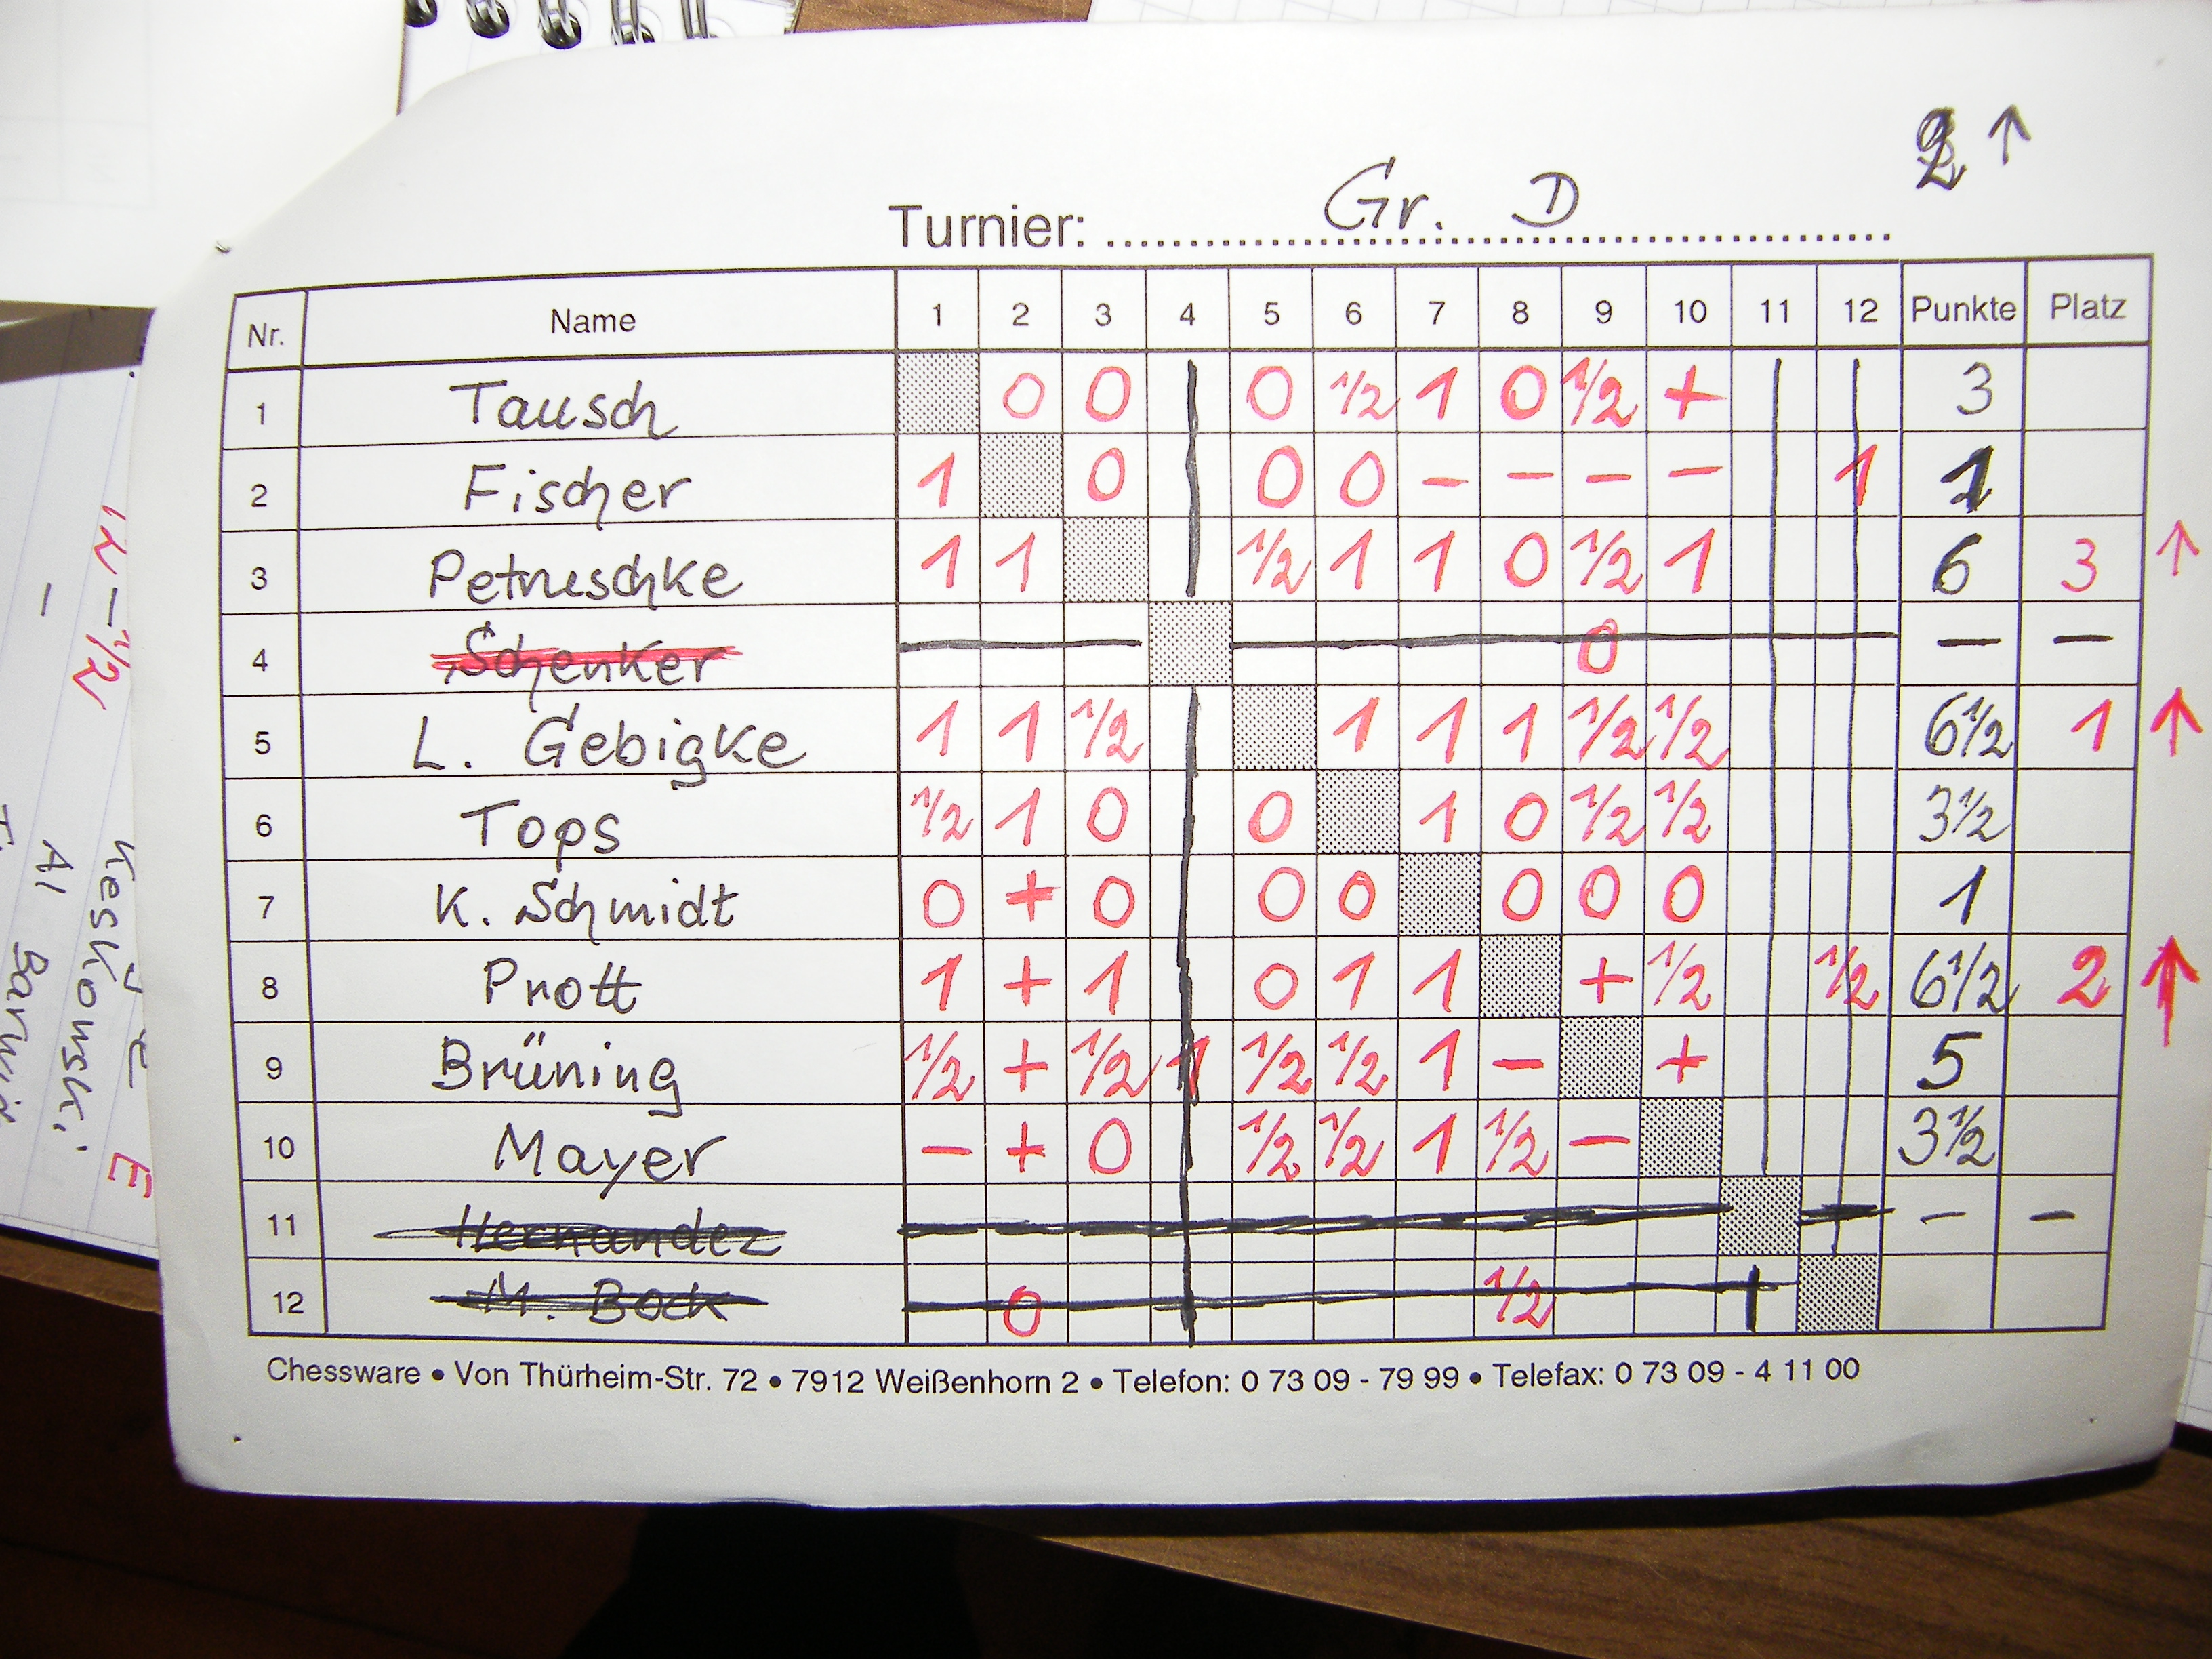 2 ↑
Turnier: Gr. D
Nr. Name 1 2 3 4 5 6 7 8 9 10 11 12 Punkte Platz
1 Tausch 0 0 0 1/2 1 0 1/2 + 3
2 Fischer 1 0 0 0 - - - - 1 1
3 Petruschke 1 1 1/2 1 1 0 1/2 1 6 3 ↑
4 Schenker 0 - -
5 L. Gebigke 1 1 1/2 1 1 1 1/2 1/2 6 1/2 1 ↑
6 Tops 1/2 1 0 0 1 0 1/2 1/2 3 1/2
7 K. Schmidt 0 + 0 0 0 0 0 0 1
8 Prott 1 + 1 0 1 1 + 1/2 1/2 6 1/2 2 ↑
9 Brüning 1/2 + 1/2 1 1/2 1/2 1 - + 5
10 Mayer - + 0 1/2 1/2 1 1/2 - 3 1/2
11 Hernandez - -
12 M. Bock 0 1/2
Chessware • Von Thürheim-Str. 72 • 7912 Weißenhorn 2 • Telefon: 0 73 09 - 79 99 • Telefax: 0 73 09 - 4 11 00